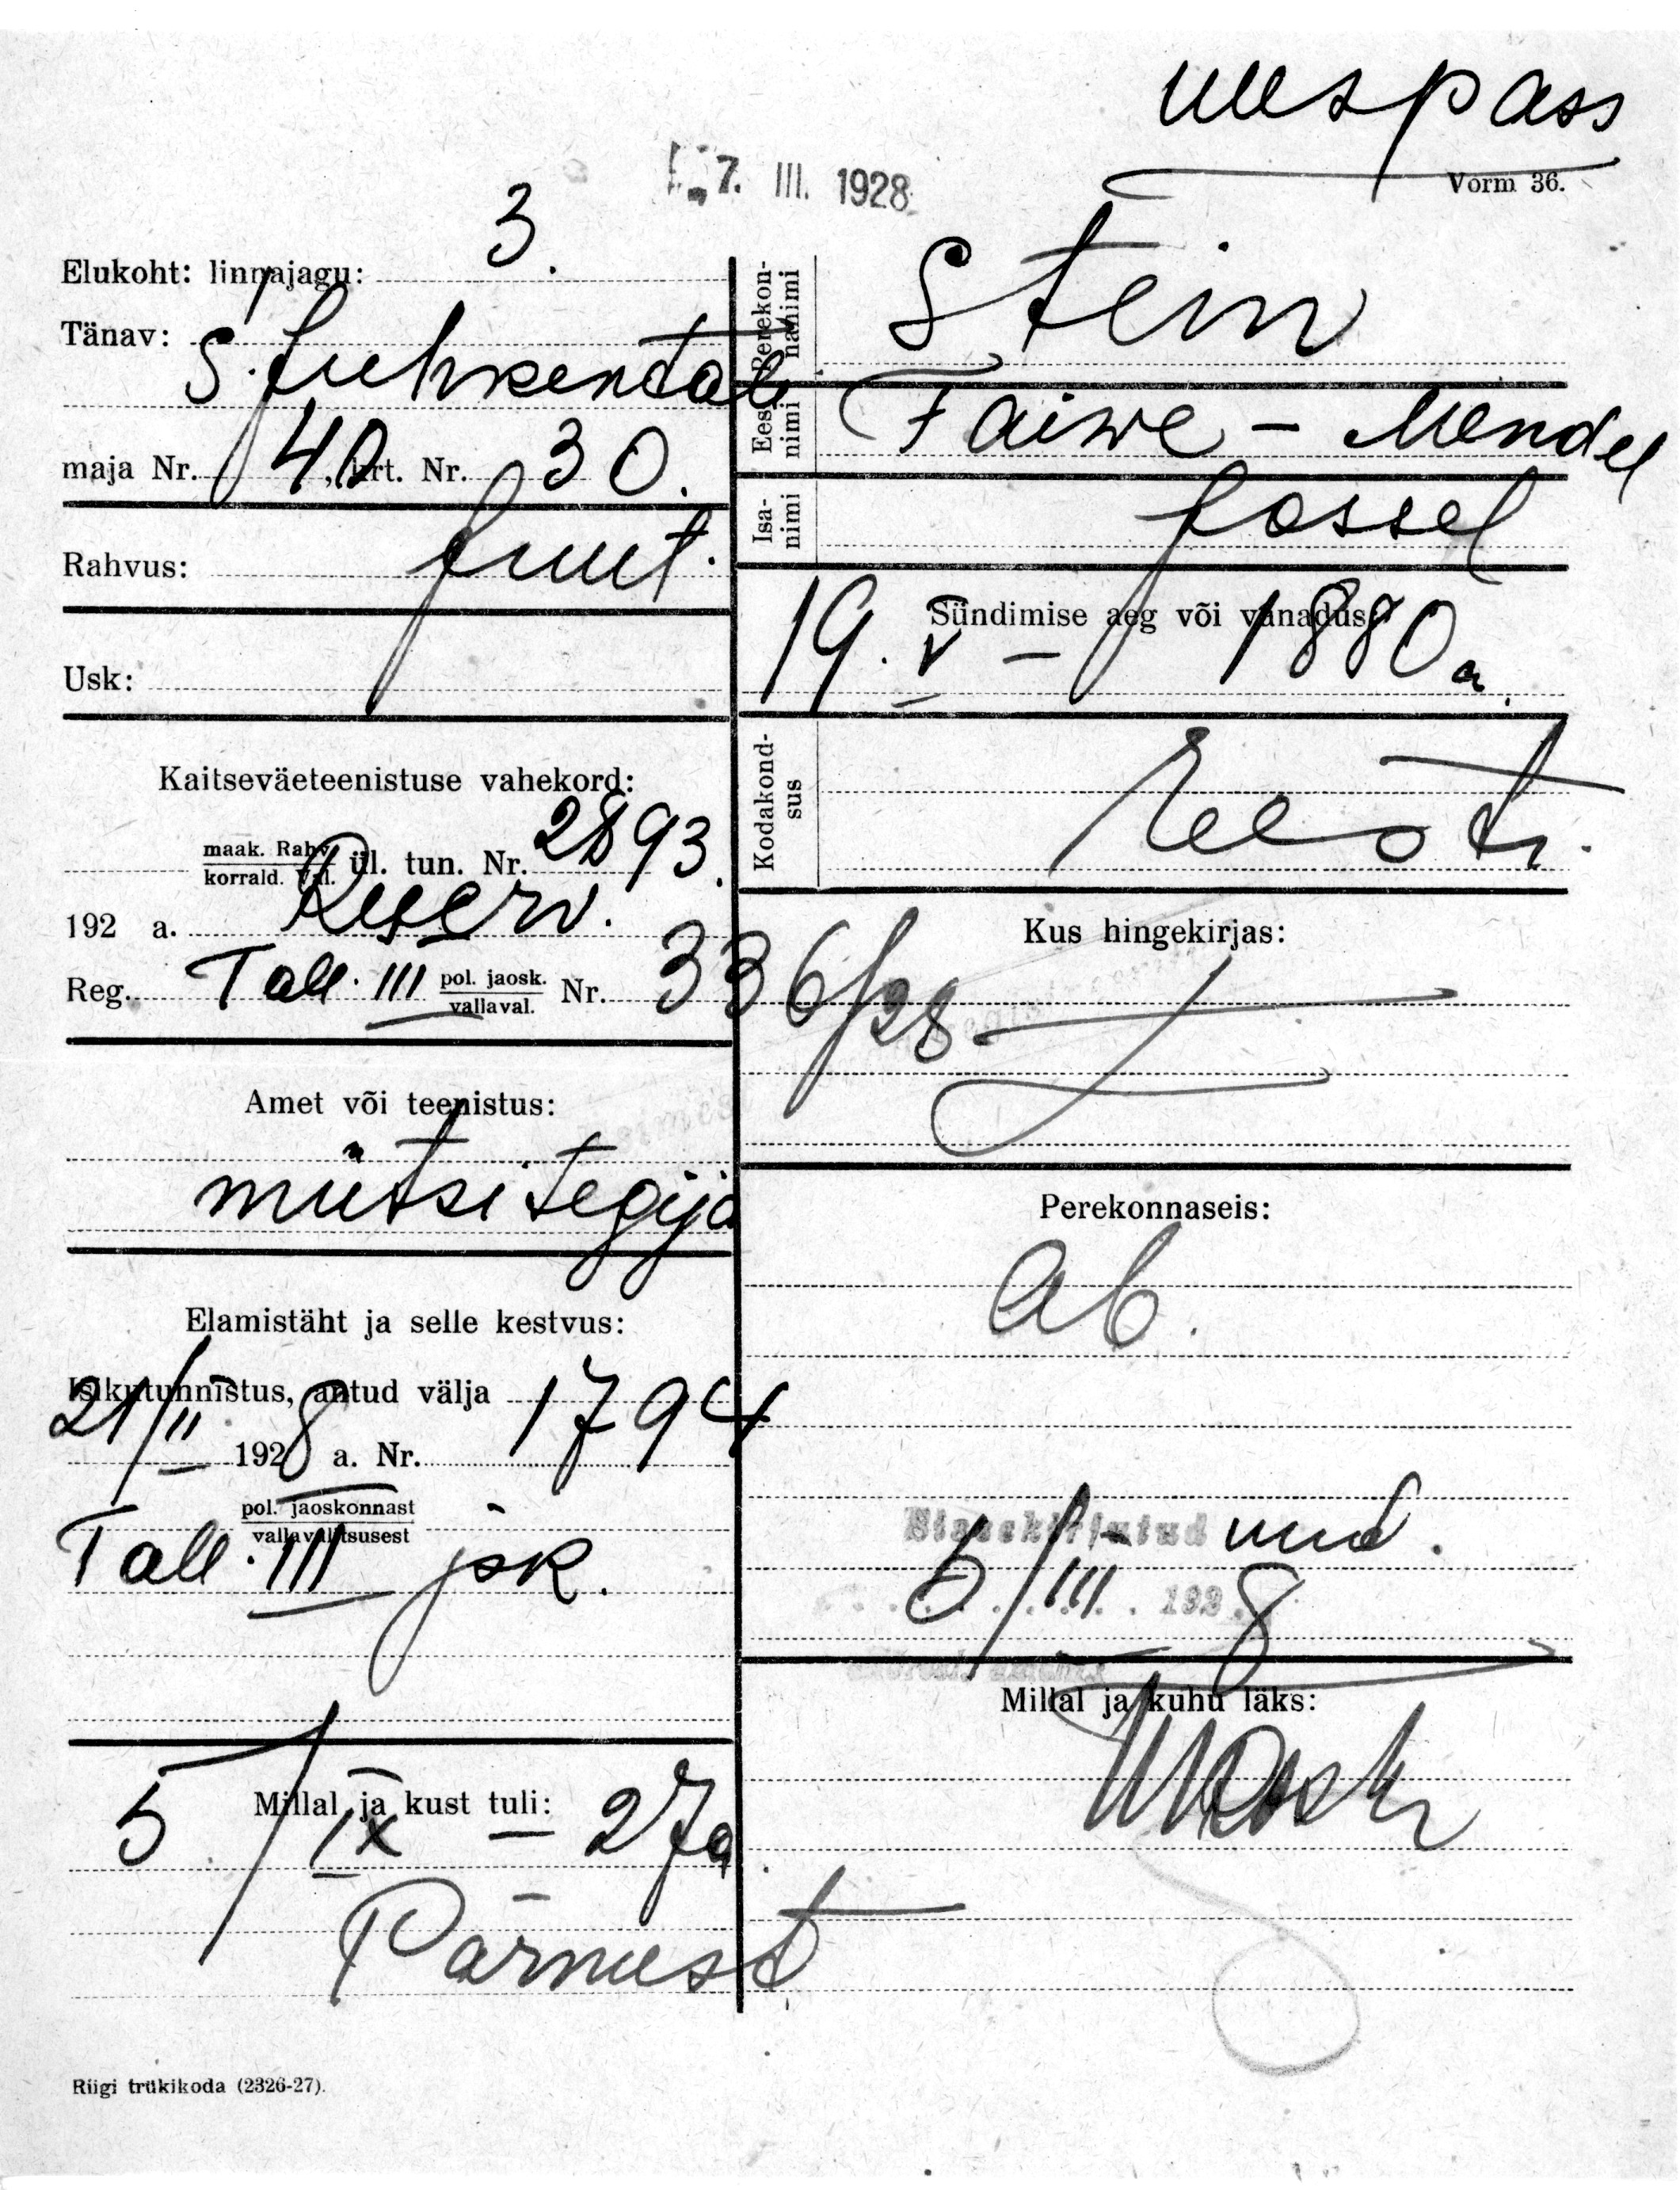 uuespass
7. III. 1928
Vorm 36.
Elukoht: linnajagu: 3.
Tänav: S. Juhkentali
maja Nr. 40, krt. Nr. 30.
Rahvus: Juut.
Usk:
Kaitseväeteenistuse vahekord:
maak. Rahv. ül. tun. Nr. 2893.
korrald. Val.
192 a. Reserv.
Reg. Tall. III pol. jaosk. Nr. 336/28
vallaval.
Amet või teenistus:
mütsitegija
Elamistäht ja selle kestvus:
Isikutunnistus, antud välja 1794
21/II 1928 a. Nr.
pol. jaoskonnast
vallavalitsusest
Tall. III jsk.
Millal ja kust tuli:
5/IX – 27a.
Pärnust
Perekonnanimi Stein
Eesnimi Faiwe - Mendel
Isanimi Jossel
Sündimise aeg või vanadus:
19. V – 1880 a.
Kodakondsus Eesti.
Kus hingekirjas:
Perekonnaseis:
ab.
Sissekirjutud uud.
5/III 1928
Millal ja kuhu läks:
Riigi trükikoda (2326-27).